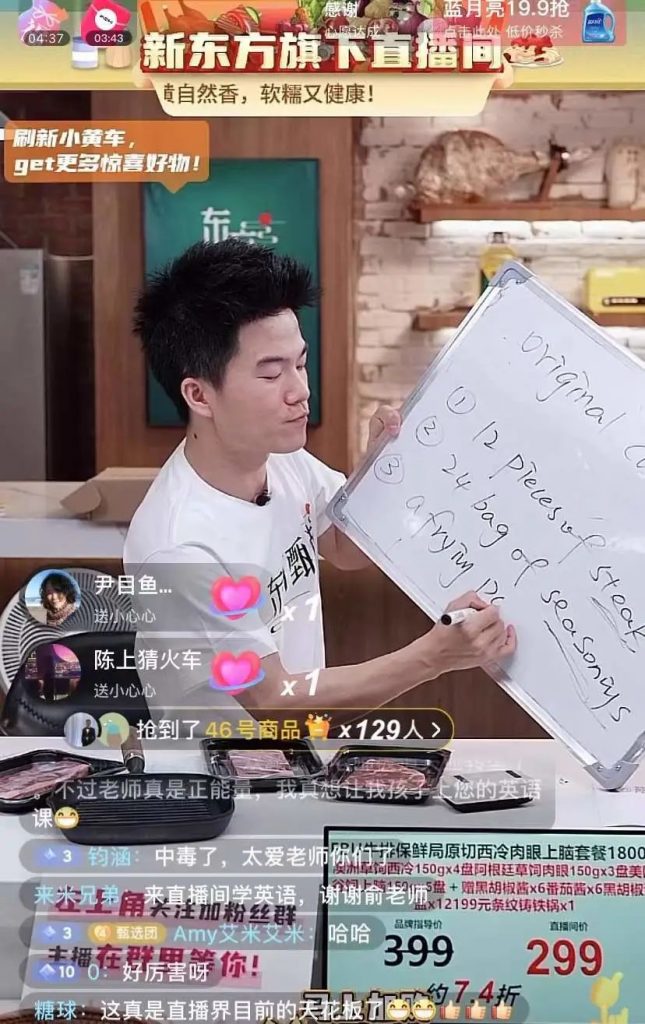 04:37
03:43
感谢
心愿达成
蓝月亮19.9抢
点击此处 低价秒杀
新东方旗下直播间
黄自然香，软糯又健康！
刷新小黄车，
get更多惊喜好物！
东
original
① 12 pieces of steak
② 24 bag of seasonings
③ a frying
东 甄
尹目鱼...
送小心心
x 1
陈上猜火车
送小心心
x 1
抢到了 46号商品 x129人 >
。不过老师真是正能量，我真想让我孩子上您的英语
课😁
3 钧涵：中毒了，太爱老师你们了
来米兄弟：来直播间学英语，谢谢俞老师
左上角关注加粉丝群
3 甄选团 Amy艾米艾米：哈哈
主播在群里等你！
10 0：好厉害呀
糖球：这真是直播界目前的天花板了😁😁👍👍👍
牛排保鲜局原切西冷肉眼上脑套餐1800
澳洲草饲西冷150gx4盘阿根廷草饲肉眼150gx3盘美
盘 + 赠黑胡椒酱x6番茄酱x6黑胡椒
盘x12199元条纹铸铁锅x1
品牌指导价
直播间价
399
299
约7.4折